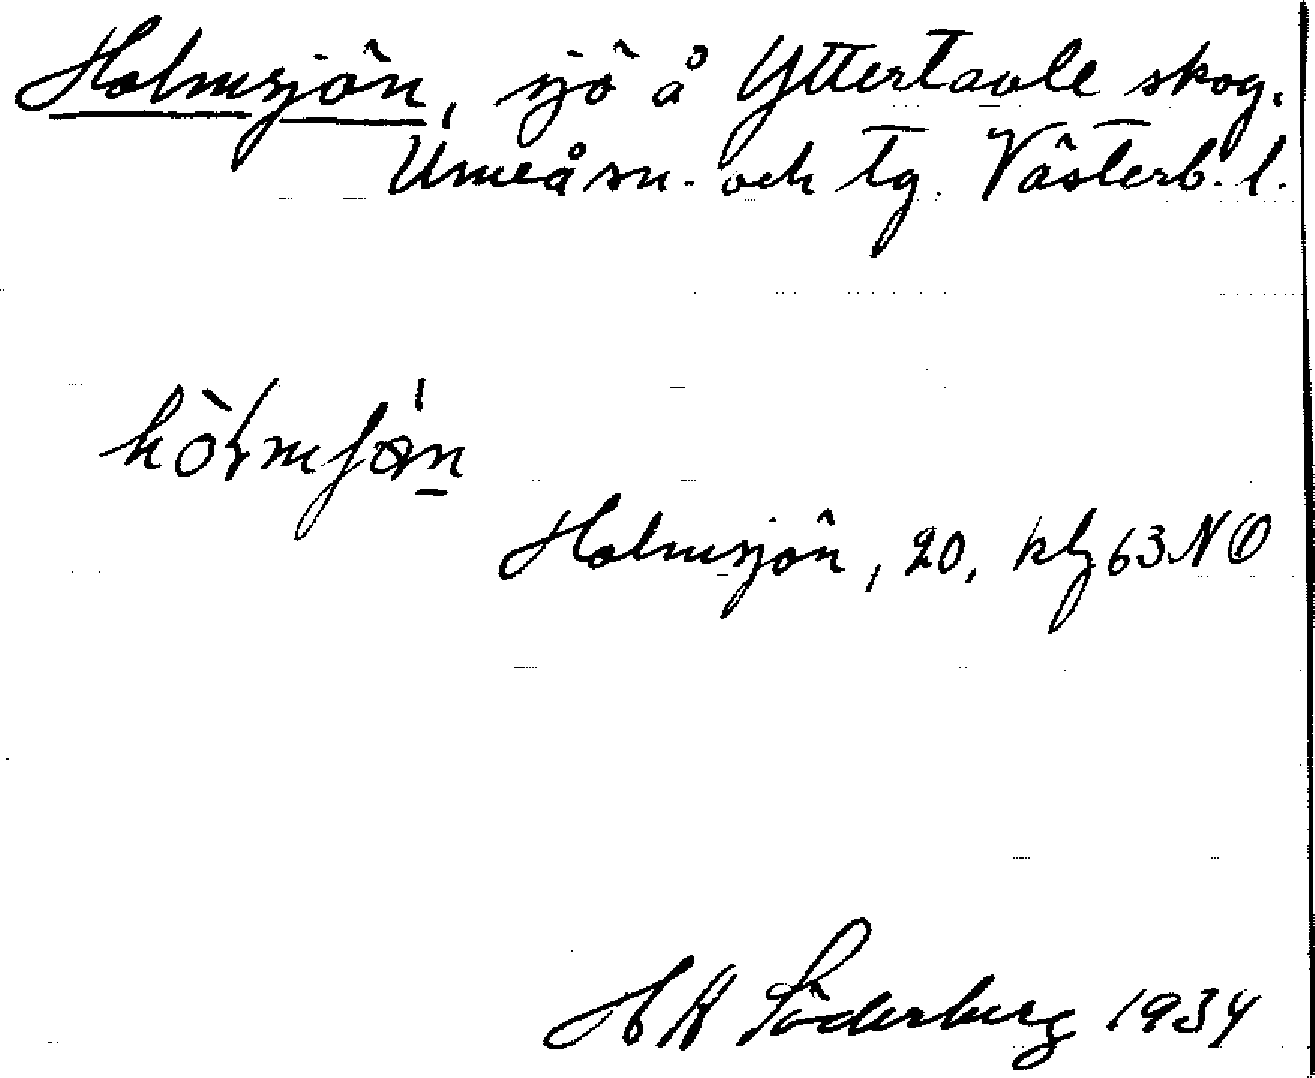 Holmsjön, sjö å Yttertavle skog.
Umeå sn. och tg. Västerb. l.
Holmsjön, 20, kbl 63 NO
H Söderberg 1934